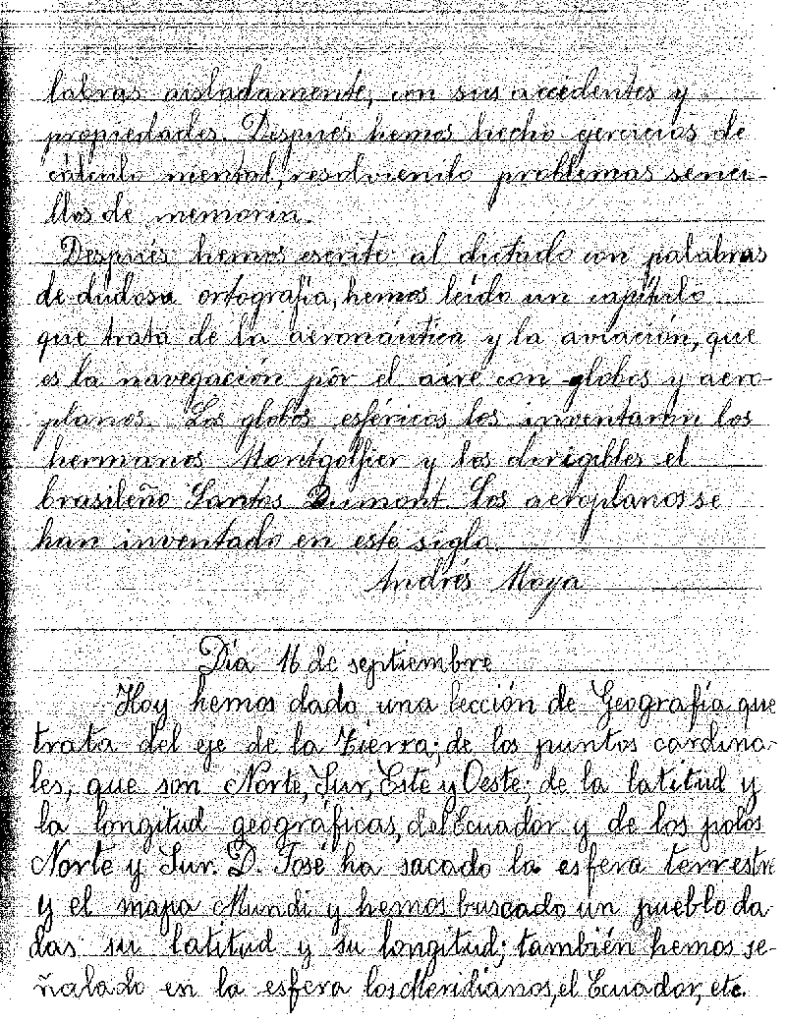 labras aisladamente, con sus accidentes y
propiedades. Después hemos hecho ejercicios de
cálculo mental, resolviendo problemas senci-
llos de memoria.
Después hemos escrito al dictado con palabras
de dudosa ortografía, hemos leído un capítulo
que trata de la aeronáutica y la aviación, que
es la navegación por el aire con globos y aero-
planos. Los globos esféricos los inventaron los
hermanos Montgolfier y los dirigibles el
brasileño Santos Dumont. Los aeroplanos se
han inventado en este siglo.
Andrés Moya
Día 16 de septiembre
Hoy hemos dado una lección de Geografía que
trata del eje de la Tierra; de los puntos cardina-
les, que son Norte, Sur, Este y Oeste; de la latitud y
la longitud geográficas, del Ecuador y de los polos
Norte y Sur. D. José ha sacado la esfera terrestre
y el mapa Mundi y hemos buscado un pueblo da-
das su latitud y su longitud; también hemos se-
ñalado en la esfera los Meridianos, el Ecuador, etc.